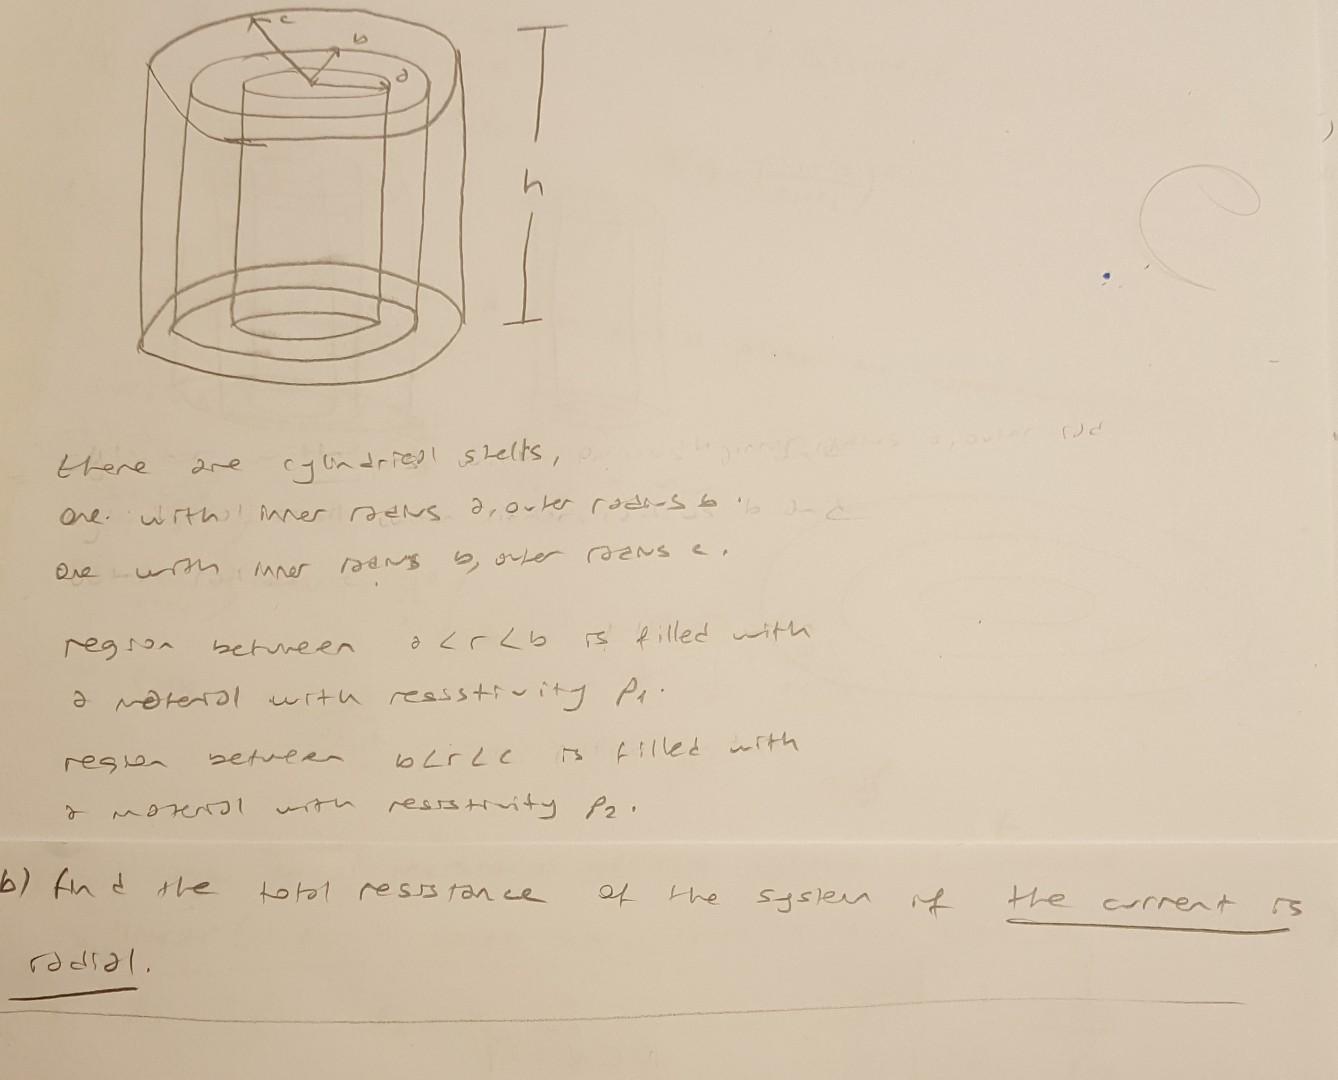 c
b
a
h
there are cylindrical shells,
one with inner radius a, outer radius b.
one with inner radius b, outer radius c.
region between a<r<b is filled with
a material with resistivity ρ1.
region between b<r<c is filled with
a material with resistivity ρ2.
b) find the total resistance of the system if the current is
radial.